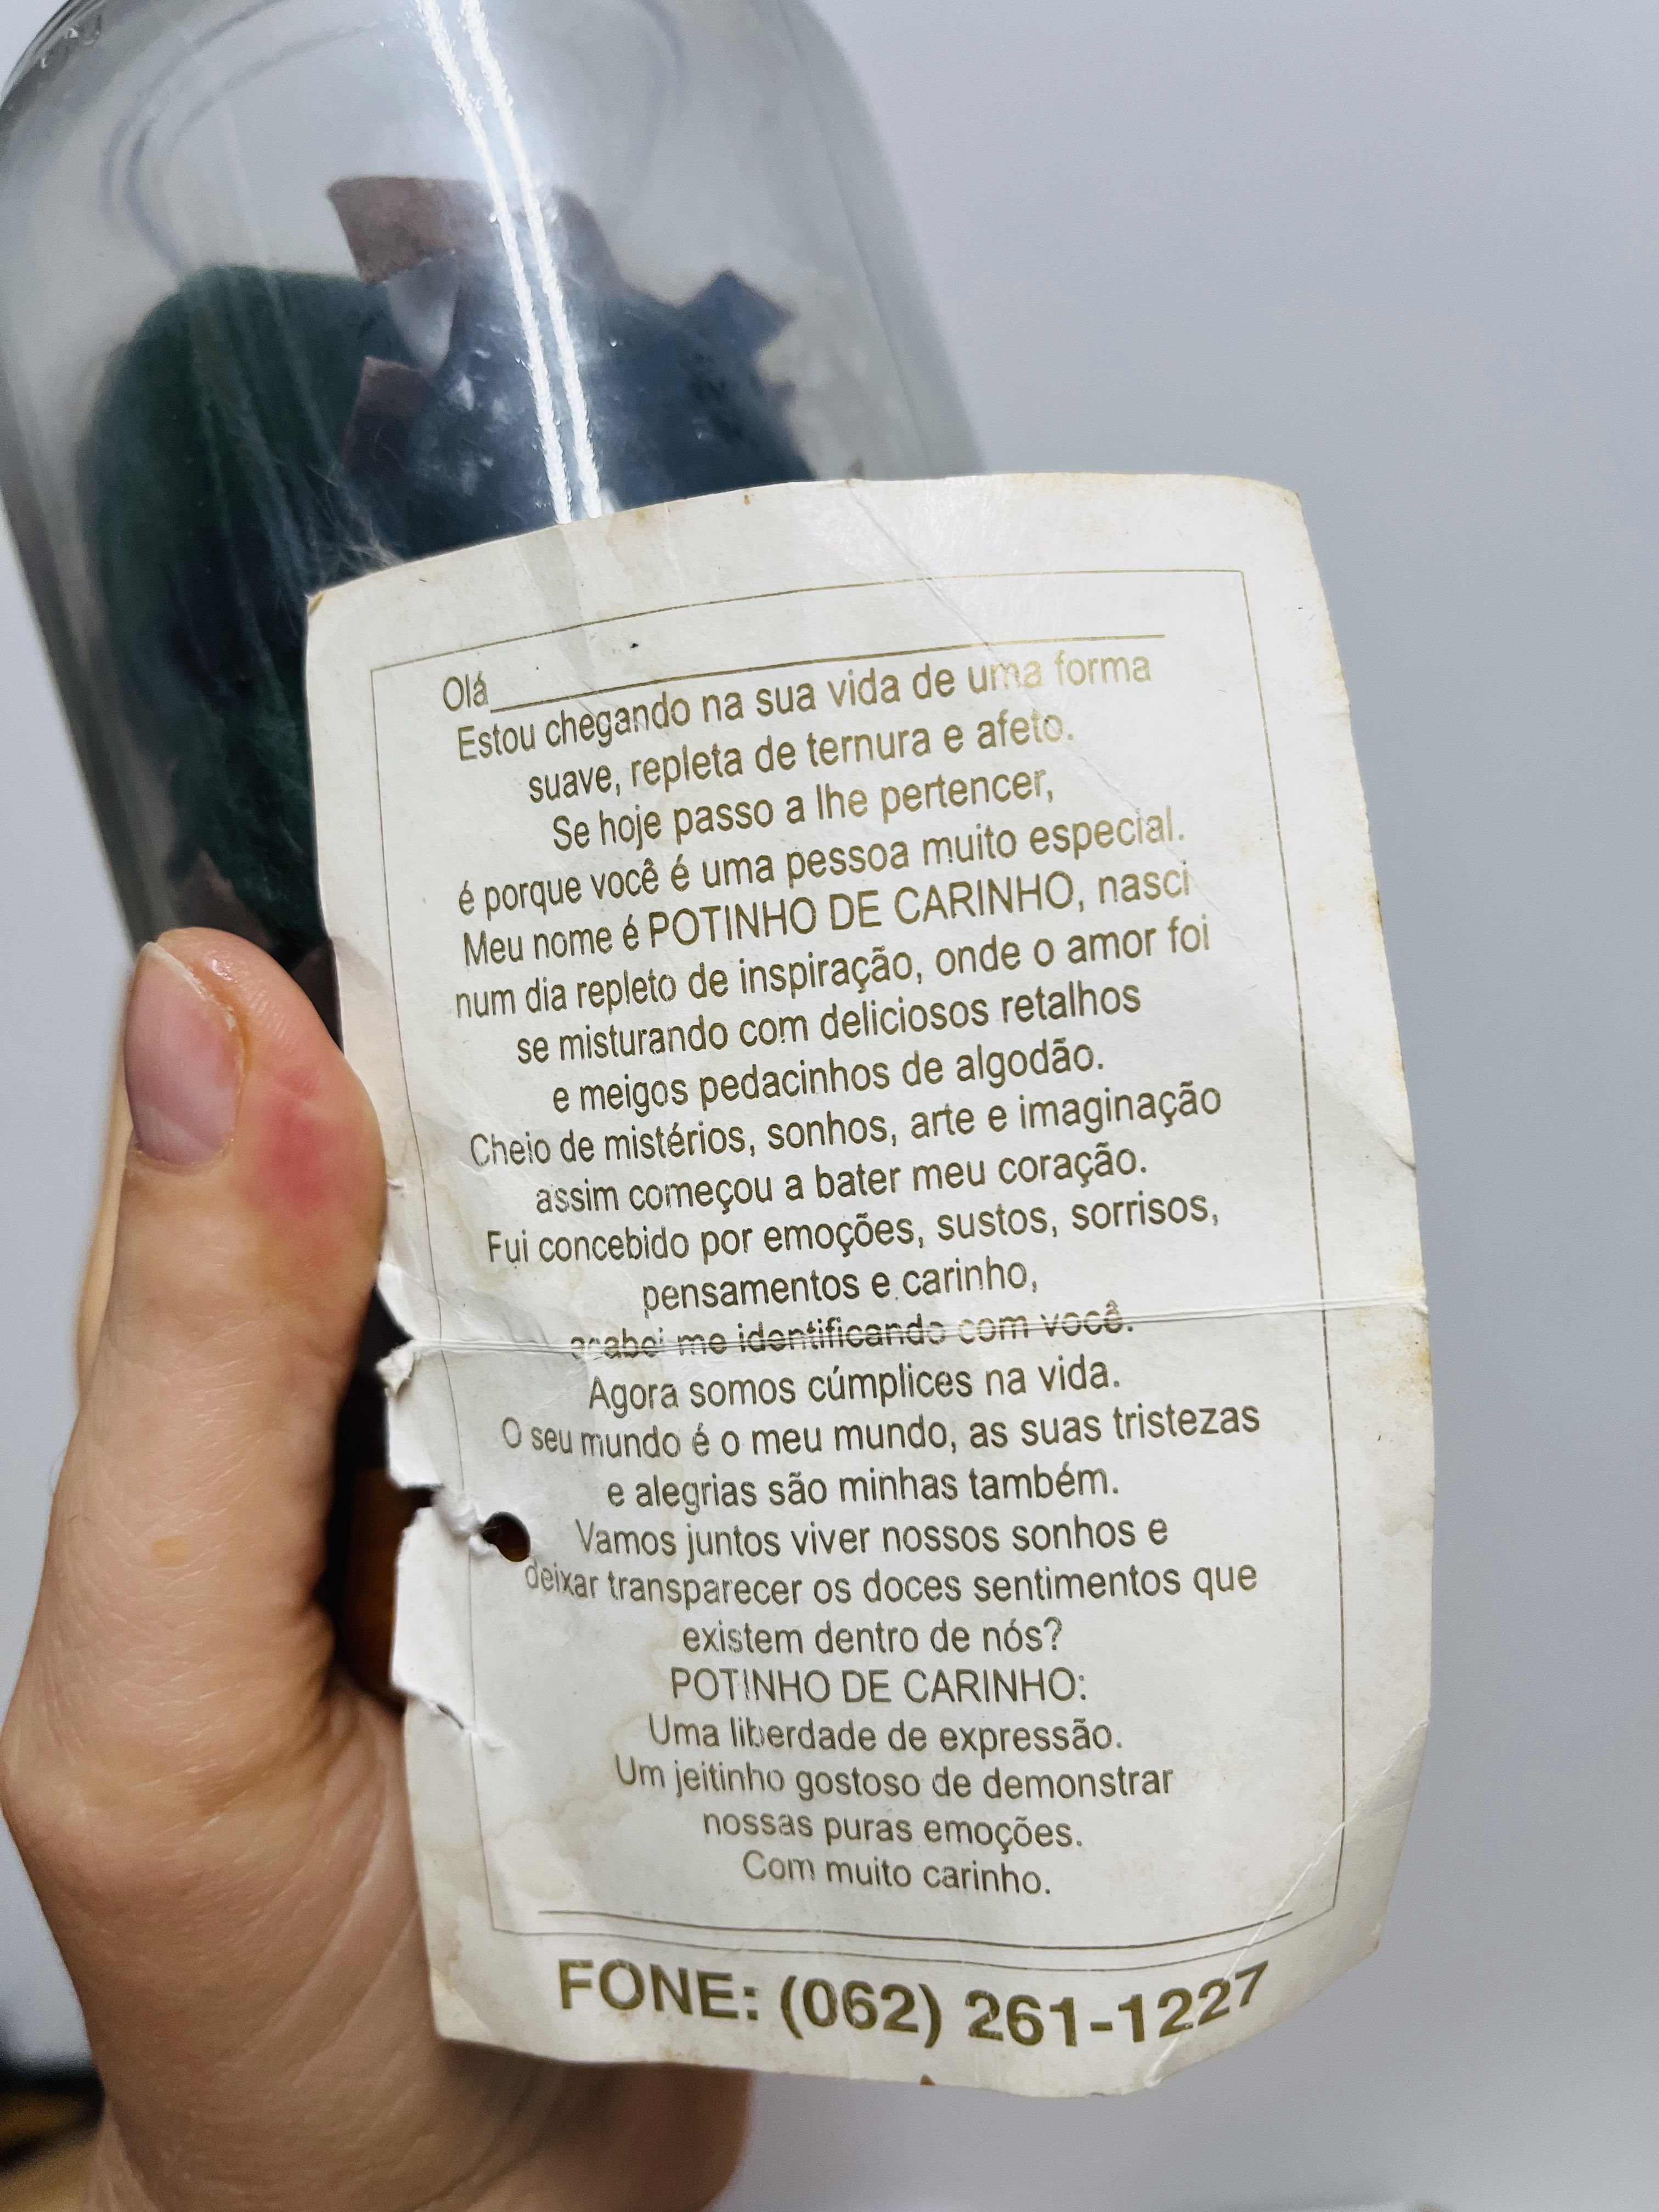 Olá
Estou chegando na sua vida de uma forma
suave, repleta de ternura e afeto.
Se hoje passo a lhe pertencer,
é porque você é uma pessoa muito especial.
Meu nome é POTINHO DE CARINHO, nasci
num dia repleto de inspiração, onde o amor foi
se misturando com deliciosos retalhos
e meigos pedacinhos de algodão.
Cheio de mistérios, sonhos, arte e imaginação
assim começou a bater meu coração.
Fui concebido por emoções, sustos, sorrisos,
pensamentos e carinho,
acabei me identificando com você.
Agora somos cúmplices na vida.
O seu mundo é o meu mundo, as suas tristezas
e alegrias são minhas também.
Vamos juntos viver nossos sonhos e
deixar transparecer os doces sentimentos que
existem dentro de nós?
POTINHO DE CARINHO:
Uma liberdade de expressão.
Um jeitinho gostoso de demonstrar
nossas puras emoções.
Com muito carinho.
FONE: (062) 261-1227